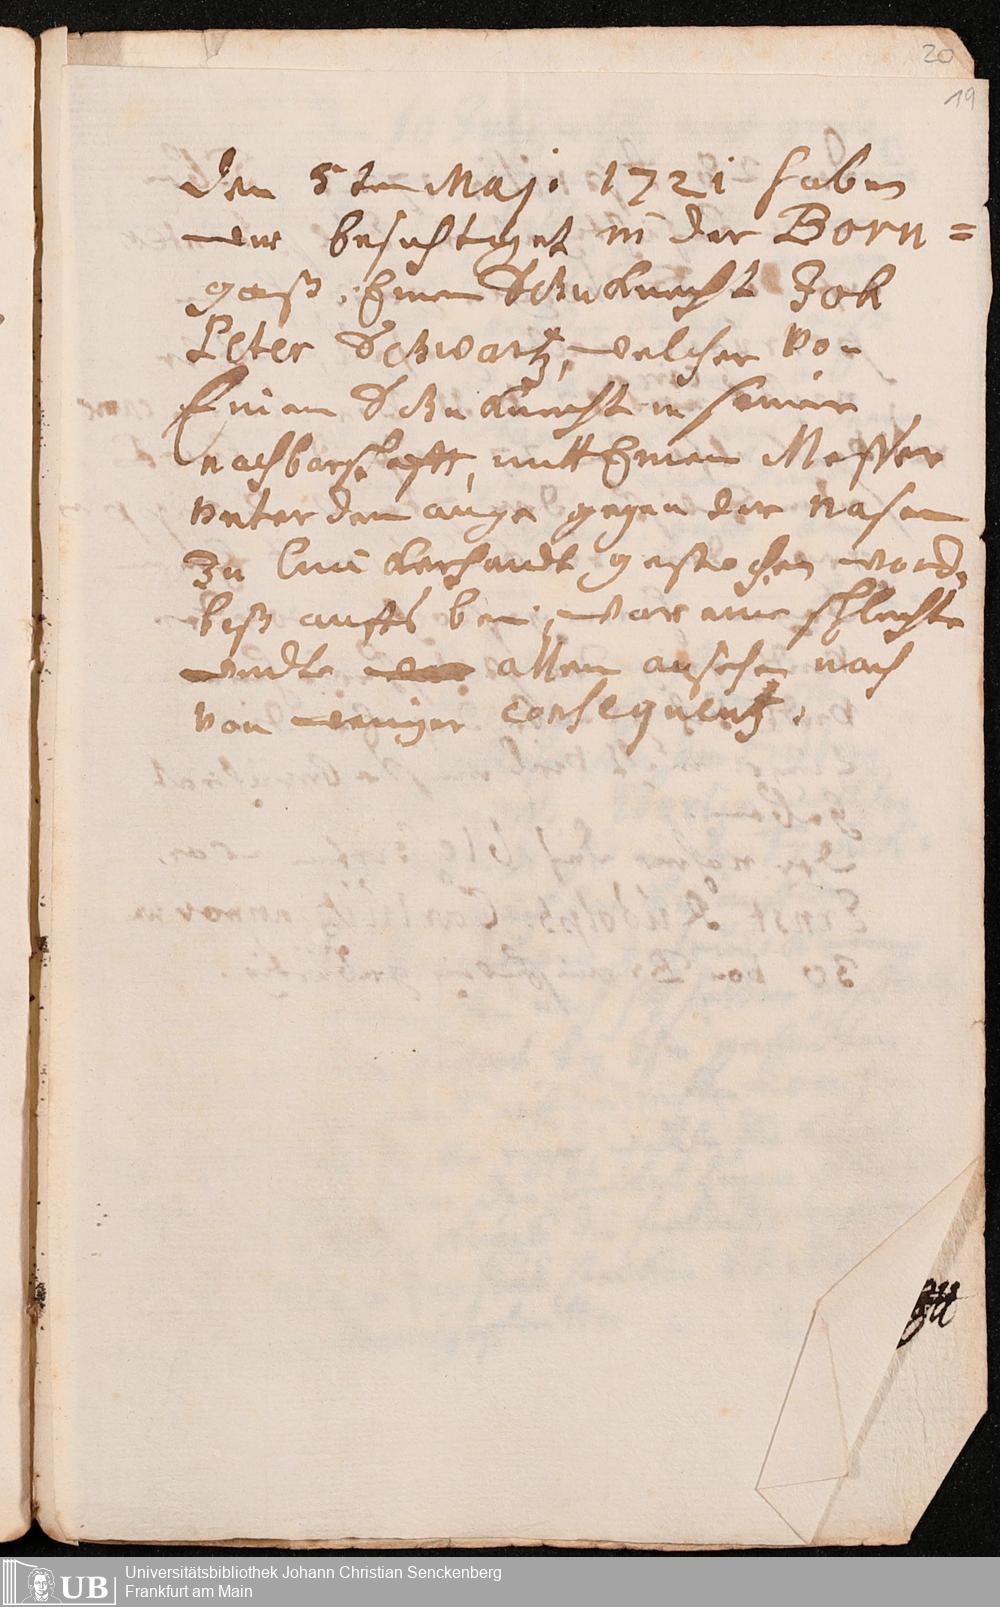 20
19
den 5ten Maji 1721 haben
wir besichtiget in der Born=
gaß, Einen Schuknecht Joh
Peter Schwartz, welcher von
Einem Schuknecht in seiner
nachbarschafft, mitt Einem Messer
unter dem auge gegen der nasen
zu lincker handt gestochen word.
biß auffs bein, war eine schlechte
wundte allem ansehen nach
von weniger consequentz.
UB
Universitätsbibliothek Johann Christian Senckenberg
Frankfurt am Main